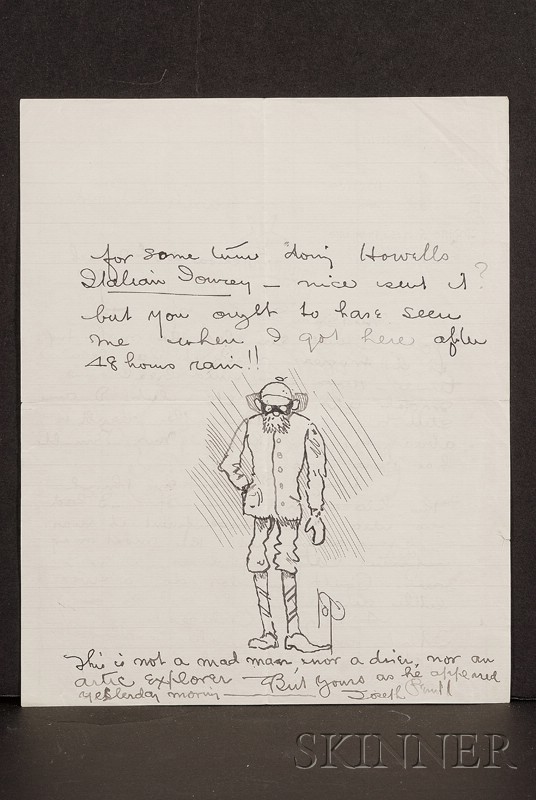 for some time doing Howells
Italian Journey – nice isnt it?
but you ought to have seen
me when I got here after
48 hours rain!!
JP
This is not a mad man, nor a diver, nor an
artic explorer – But yours as he appeared
yesterday mornin ———
Joseph Pennell
SKINNER